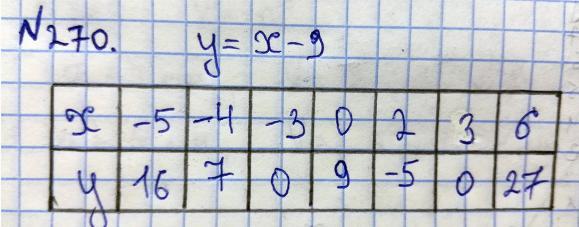 N270. y = x - 9
x -5 -4 -3 0 2 3 6
y 16 7 0 9 -5 0 27